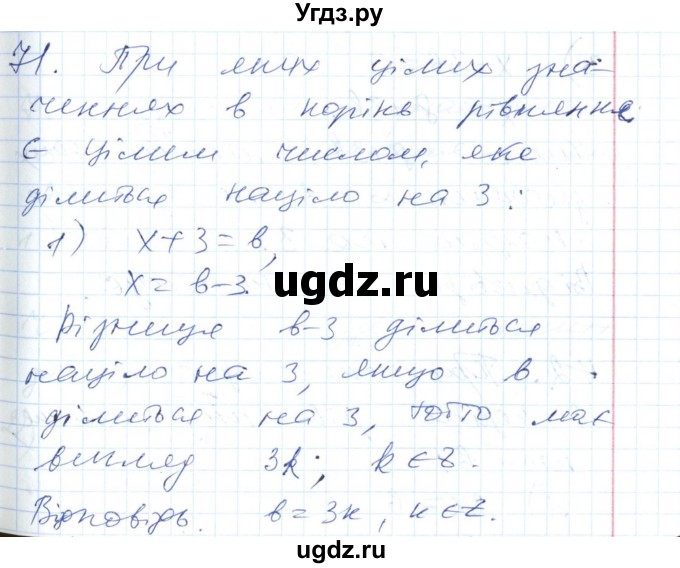 Угдз.ру
71. При яких цілих зна-
ченнях в корінь рівняння
є цілим числом, яке
ділиться націло на 3:
1) x+3=в,
x=в-3.
ugdz.ru
Різниця в-3 ділиться
націло на 3, якщо в
ділиться на 3, тобто має
вигляд 3k; k∈Z.
ugdz.ru
Відповідь. в=3к, к∈Z.
ugdz.ru